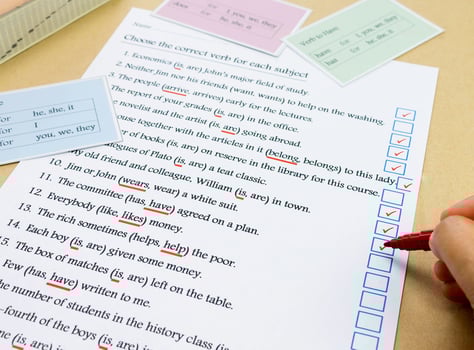 does for I, you, we, they
for he, she, it
Verb to Have
have for I, you, we, they
has for he, she, it
for he, she, it
for I
for you, we, they
Name
Choose the correct verb for each subject
1. Economics (is, are) John's major field of study.
2. Neither Jim nor his friends (want, wants) to help on the washing.
3. The people (arrive, arrives) early for the lectures.
The report of your grades (is, are) in the office.
novelist and the artist (is, are) going abroad.
together with the articles in it (belong, belongs) to this lady.
of books (is, are) on reserve in the library for this course.
Dialogues of Plato (is, are) a teat classic.
My old friend and colleague, William (is, are) in town.
10. Jim or John (wears, wear) a white suit.
11. The committee (has, have) agreed on a plan.
12. Everybody (like, likes) money.
13. The rich sometimes (helps, help) the poor.
14. Each boy (is, are) given some money.
15. The box of matches (is, are) left on the table.
Few (has, have) written to me.
The number of students in the history class (is
-fourth of the boys (is, are)
(is, are)